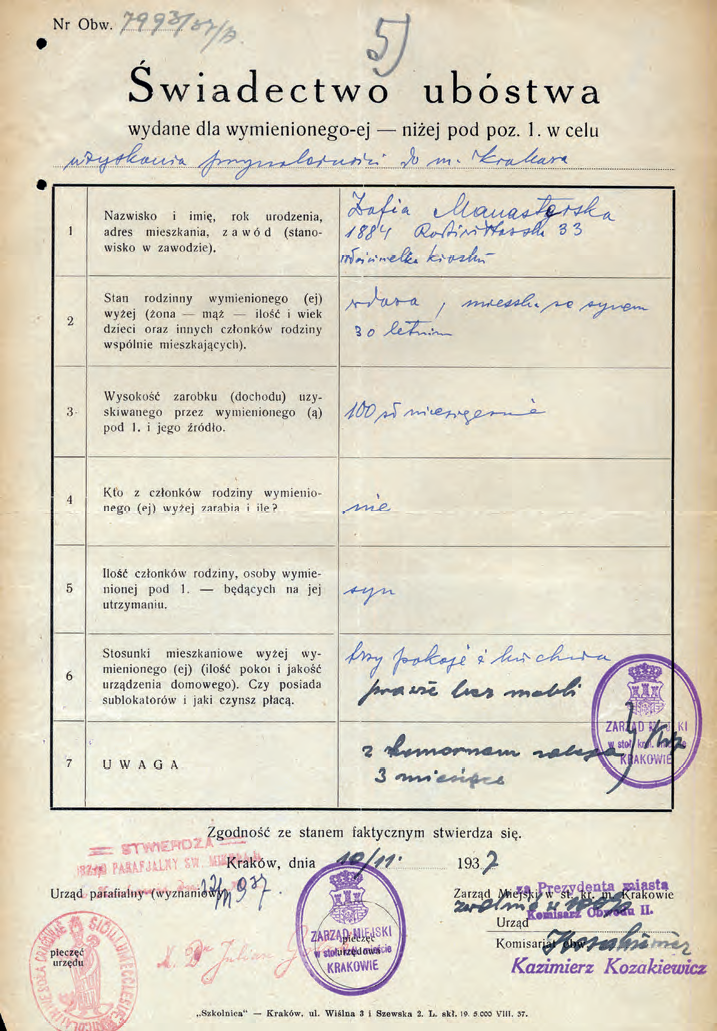 Nr Obw.
5)
Świadectwo ubóstwa
wydane dla wymienionego-ej — niżej pod poz. 1. w celu
uzyskania przynależności do m. Krakowa
1
Nazwisko i imię, rok urodzenia,
adres mieszkania, zawód (stano-
wisko w zawodzie).
Zofia Manasterska
1884 33
właścicielka kiosku
2
Stan rodzinny wymienionego (ej)
wyżej (żona — mąż — ilość i wiek
dzieci oraz innych członków rodziny
wspólnie mieszkających).
wdowa, mieszka ze synem
30 letnim
3
Wysokość zarobku (dochodu) uzy-
skiwanego przez wymienionego (ą)
pod 1. i jego źródło.
100 zł miesięcznie
4
Kto z członków rodziny wymienio-
nego (ej) wyżej zarabia i ile?
nie
5
Ilość członków rodziny, osoby wymie-
nionej pod 1. — będących na jej
utrzymaniu.
syn
6
Stosunki mieszkaniowe wyżej wy-
mienionego (ej) (ilość pokoi i jakość
urządzenia domowego). Czy posiada
sublokatorów i jaki czynsz płacą.
trzy pokoje i kuchnia
prawie bez mebli
ZARZĄD MIEJSKI
w stoł. król. mieście
KRAKOWIE
7
UWAGA
z komornem zalega
3 miesiące
Zgodność ze stanem faktycznym stwierdza się.
STWIERDZA
URZĄD PARAFJALNY ŚW. MIKOŁAJA
Kraków, dnia 10/11. 1937
Urząd parafialny (wyznaniowy)
Zarząd Miejski w st. kr. m. Krakowie
za Prezydenta miasta
Komisarz Obwodu II.
Urząd
Komisariat obw.
pieczęć
urzędu
X. Dr Julian
ZARZĄD MIEJSKI
w stoł. król. mieście
KRAKOWIE
pieczęć
urzędowa
Kazimierz Kozakiewicz
„Szkolnica" — Kraków. ul. Wiślna 3 i Szewska 2. L. skł. 19. 5.000 VIII. 37.